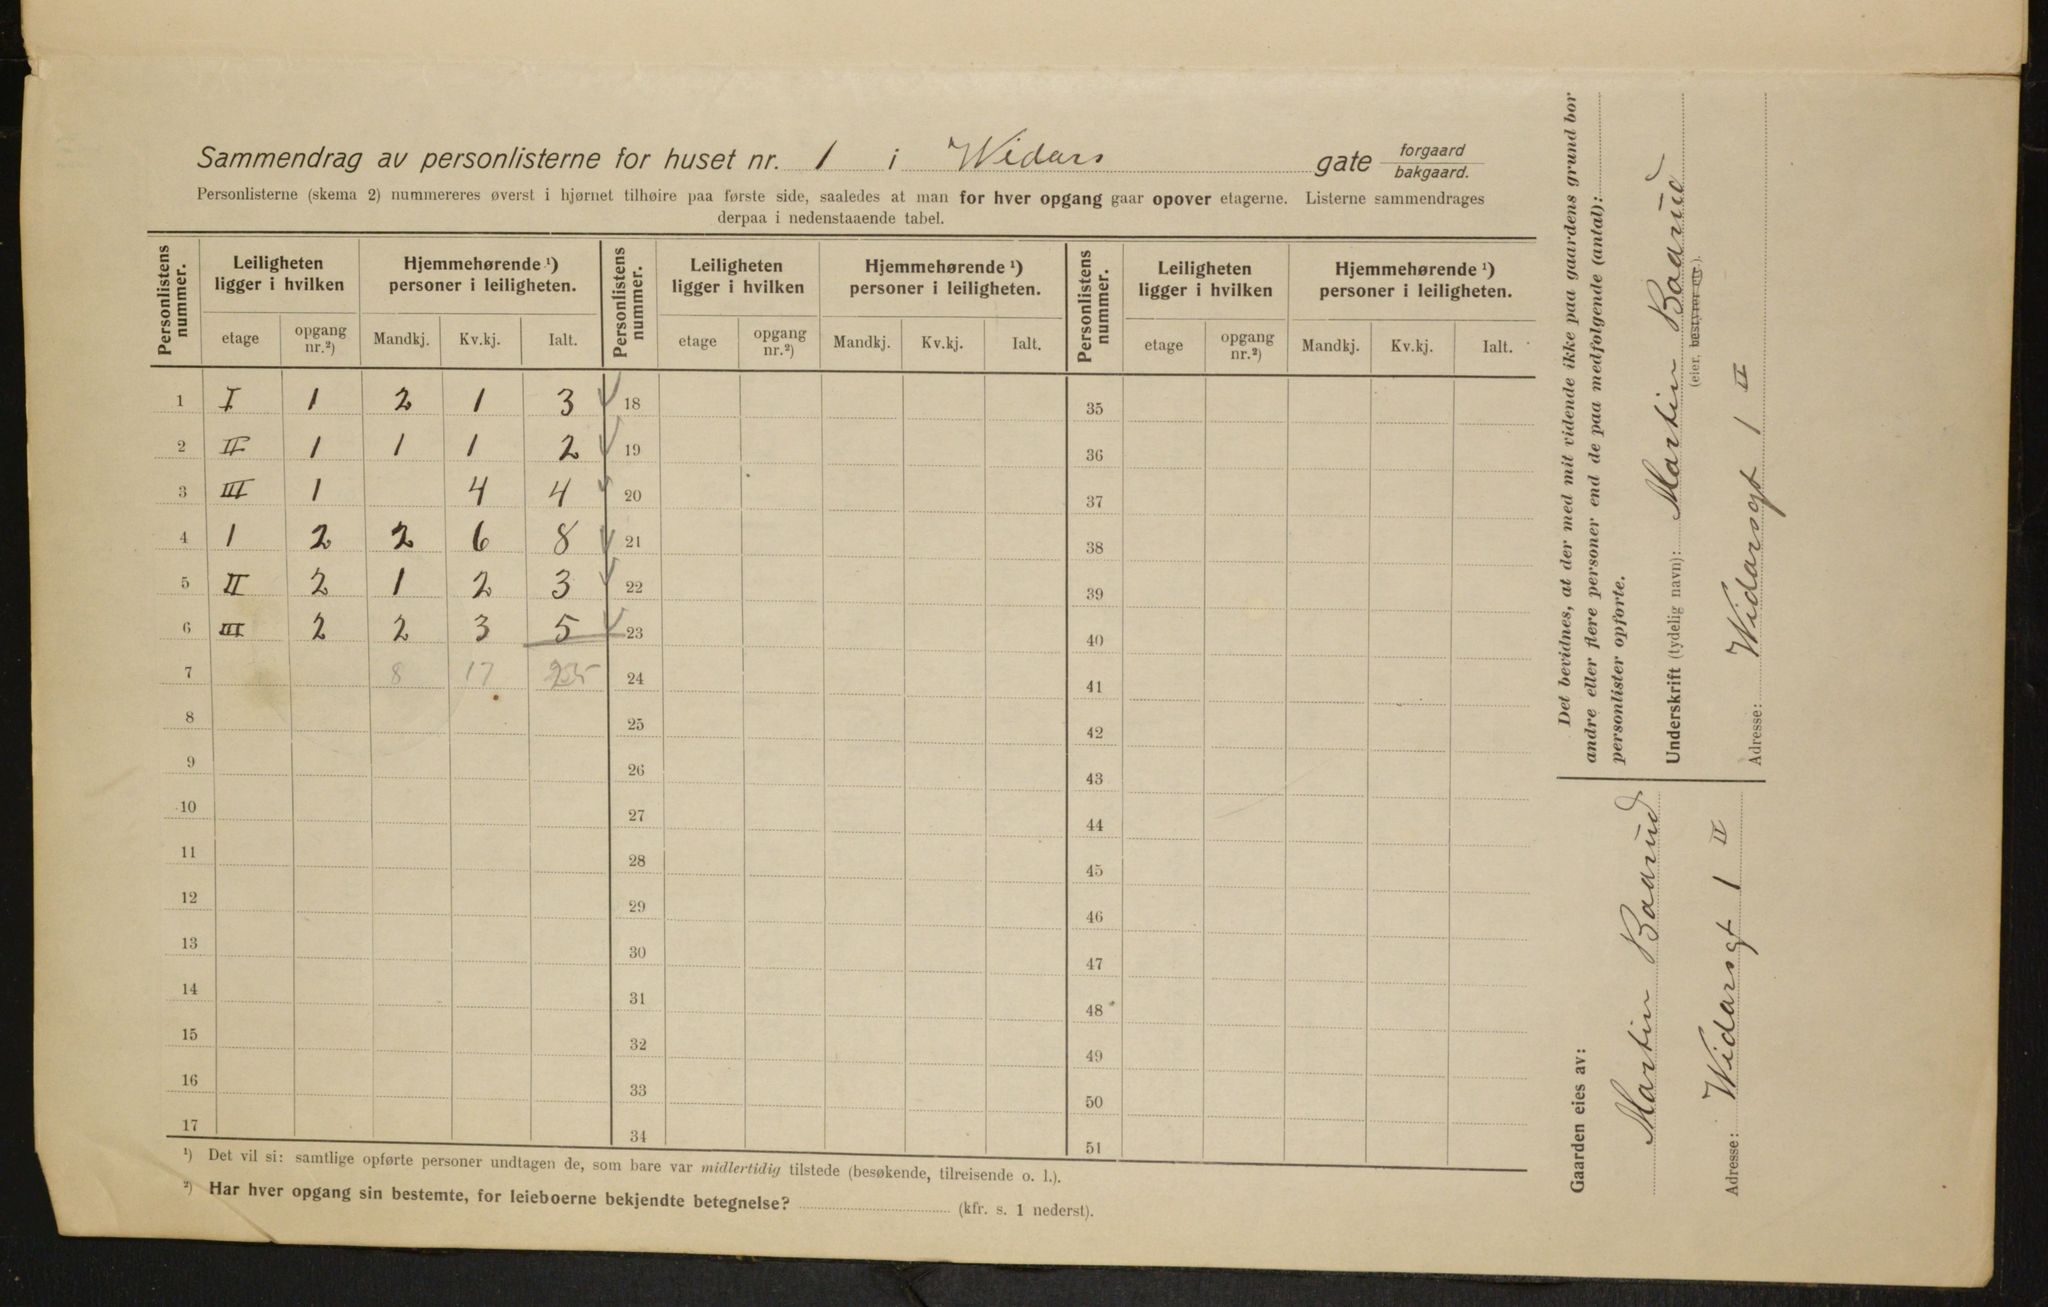 Sammendrag av personlisterne for huset nr. 1 i Widars gate forgaard
bakgaard.
Personlisterne (skema 2) nummereres øverst i hjørnet tilhøire paa første side, saaledes at man for hver opgang gaar opover etagerne. Listerne sammendrages
derpaa i nedenstaaende tabel.
Personlistens nummer. Leiligheten ligger i hvilken Hjemmehørende ¹) personer i leiligheten. Personlistens nummer. Leiligheten ligger i hvilken Hjemmehørende ¹) personer i leiligheten. Personlistens nummer. Leiligheten ligger i hvilken Hjemmehørende ¹) personer i leiligheten.
etage opgang nr.²) Mandkj. Kv.kj. Ialt. etage opgang nr.²) Mandkj. Kv.kj. Ialt. etage opgang nr.²) Mandkj. Kv.kj. Ialt.
1 I 1 2 1 3 18 35
2 II 1 1 1 2 19 36
3 III 1 4 4 20 37
4 1 2 2 6 8 21 38
5 II 2 1 2 3 22 39
6 III 2 2 3 5 23 40
7 8 17 25 24 41
8 25 42
9 26 43
10 27 44
11 28 45
12 29 46
13 30 47
14 31 48
15 32 49
16 33 50
17 34 51
¹) Det vil si: samtlige opførte personer undtagen de, som bare var midlertidig tilstede (besøkende, tilreisende o. l.).
²) Har hver opgang sin bestemte, for leieboerne bekjendte betegnelse? (kfr. s. 1 nederst).
Det bevidnes, at der med mit vidende ikke paa gaardens grund bor
andre eller flere personer end de paa medfølgende (antal):
personlister opførte.
Underskrift (tydelig navn): Martin Baarud
(eier, bestyrer etc.).
Adresse: Widarsgt 1 II
Gaarden eies av:
Martin Baarud
Adresse: Widarsgt 1 II